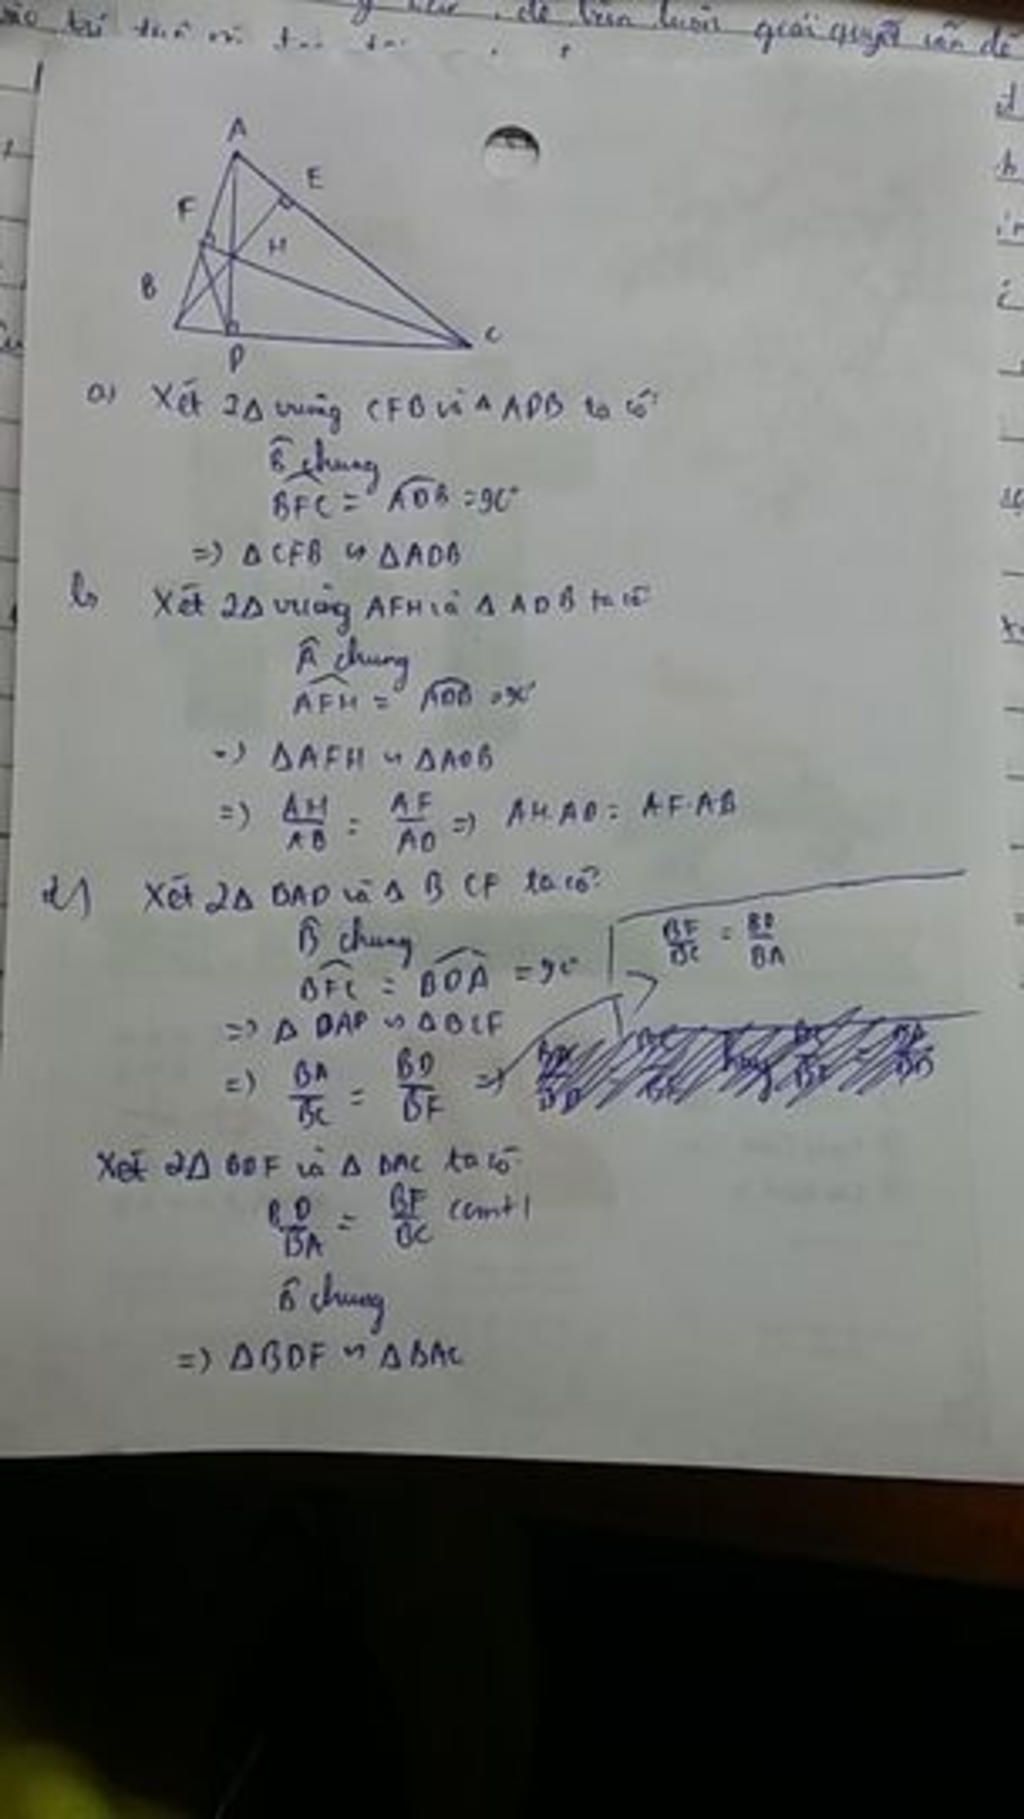 để luôn luôn giải quyết vấn đề
A
E
F
H
B
C
D
a) Xét 2Δ vuông CFB và Δ ADB ta có:
B̂ chung
BFC = ADB = 90°
=) Δ CFB ∽ ΔADB
b) Xét 2Δ vuông AFH và Δ ADB ta có
Â chung
AFH = ADB = 90°
=) ΔAFH ∽ ΔADB
=) AH/AB = AF/AD =) AH.AD = AF.AB
d) Xét 2Δ BAD và Δ BCF ta có:
B̂ chung
BFC = BDA = 90°
BF/BC = BD/BA
=) Δ BAD ∽ ΔBCF
=) BA/BC = BD/BF =)
Xét 2Δ BDF và Δ BAC ta có
BD/BA = BF/BC (cmt)
B̂ chung
=) ΔBDF ∽ ΔBAC